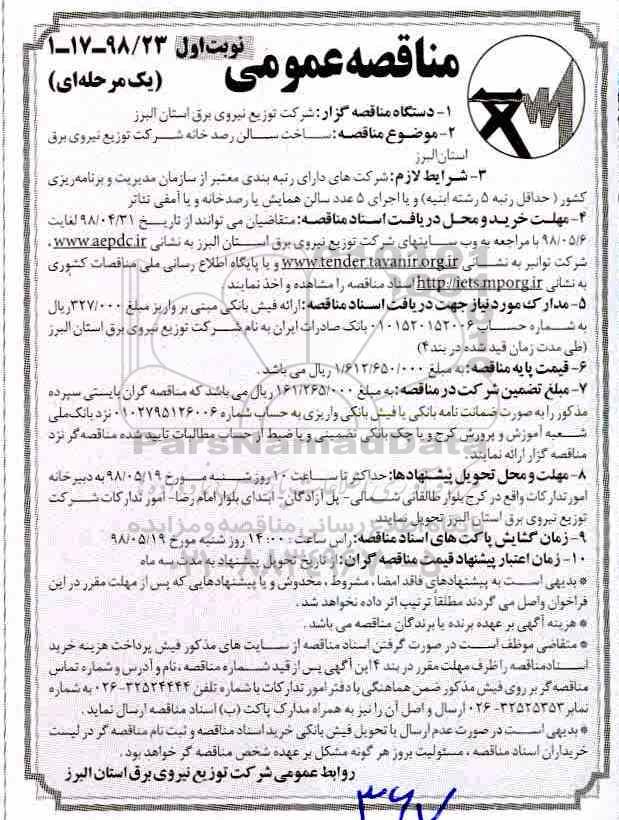 مناقصه عمومی
نوبت اول ۹۸/۲۳-۱۷-۱
(یک مرحله‌ای)
۱- دستگاه مناقصه گزار: شرکت توزیع نیروی برق استان البرز
۲- موضوع مناقصه: ساخت سالن رصد خانه شرکت توزیع نیروی برق
استان البرز
۳- شرایط لازم: شرکت های دارای رتبه بندی معتبر از سازمان مدیریت و برنامه‌ریزی
کشور (حداقل رتبه ۵ رشته ابنیه) و یا اجرای ۵ عدد سالن همایش یا رصدخانه و یا آمفی تئاتر
۴- مهلت خرید و محل دریافت اسناد مناقصه: متقاضیان می توانند از تاریخ ۹۸/۰۴/۳۱ لغایت
۹۸/۰۵/۶ با مراجعه به وب سایتهای شرکت توزیع نیروی برق استان البرز به نشانی www.aepdc.ir ،
شرکت توانیر به نشانی www.tender.tavanir.org.ir و یا پایگاه اطلاع رسانی ملی مناقصات کشوری
به نشانی http://iets.mporg.ir اسناد مناقصه را مشاهده و اخذ نمایند
۵- مدارک مورد نیاز جهت دریافت اسناد مناقصه: ارائه فیش بانکی مبنی بر واریز مبلغ ۳۲۷/۰۰۰ ریال
به شماره حساب ۰۱۰۱۵۲۰۱۵۲۰۰۶ بانک صادرات ایران به نام شرکت توزیع نیروی برق استان البرز
(طی مدت زمان قید شده در بند ۴)
۶- قیمت پایه مناقصه: به مبلغ ۱/۶۱۲/۶۵۰/۰۰۰ ریال می باشد.
۷- مبلغ تضمین شرکت در مناقصه: به مبلغ ۱۶۱/۲۶۵/۰۰۰ ریال می باشد که مناقصه گران بایستی سپرده
مذکور را به صورت ضمانت نامه بانکی یا فیش بانکی واریزی به حساب شماره ۰۱۰۲۷۹۵۱۲۶۰۰۶ نزد بانک ملی
شعبه آموزش و پرورش کرج و یا چک بانکی تضمینی و یا ضبط از حساب مطالبات تایید شده مناقصه گر نزد
مناقصه گزار ارائه نمایند.
۸- مهلت و محل تحویل پیشنهادها: حداکثر تا ساعت ۱۰ روز شنبه مورخ ۹۸/۰۵/۱۹ به دبیرخانه
امور تدارکات واقع در کرج بلوار طالقانی شمالی- پل آزادگان- ابتدای بلوار امام رضا- امور تدارکات شرکت
توزیع نیروی برق استان البرز تحویل نمایند
۹- زمان گشایش پاکت های اسناد مناقصه: راس ساعت ۱۴:۰۰ روز شنبه مورخ ۹۸/۰۵/۱۹
۱۰- زمان اعتبار پیشنهاد قیمت مناقصه گران: از تاریخ تحویل پیشنهاد به مدت سه ماه
* بدیهی است به پیشنهادهای فاقد امضا، مشروط، مخدوش و یا پیشنهادهایی که پس از مهلت مقرر در این
فراخوان واصل می گردند مطلقاً ترتیب اثر داده نخواهد شد.
* هزینه آگهی بر عهده برنده یا برندگان مناقصه می باشد.
* متقاضی موظف است در صورت گرفتن اسناد مناقصه از سایت های مذکور فیش پرداخت هزینه خرید
اسناد مناقصه را ظرف مهلت مقرر در بند ۴ این آگهی پس از قید شماره مناقصه، نام و آدرس و شماره تماس
مناقصه گر بر روی فیش مذکور ضمن هماهنگی با دفتر امور تدارکات با شماره تلفن ۳۲۵۲۴۴۴۴-۰۲۶ به شماره
نمابر ۳۲۵۲۵۳۵۳-۰۲۶ ارسال و اصل آن را نیز به همراه مدارک پاکت (ب) اسناد مناقصه ارسال نماید.
* بدیهی است در صورت عدم ارسال یا تحویل فیش بانکی خرید اسناد مناقصه و ثبت نام مناقصه گر در لیست
خریداران اسناد مناقصه، مسئولیت بروز هر گونه مشکل بر عهده شخص مناقصه گر خواهد بود.
روابط عمومی شرکت توزیع نیروی برق استان البرز
ParsNamadData
پایگاه اطلاع رسانی مناقصه و مزایده
۳۶۷